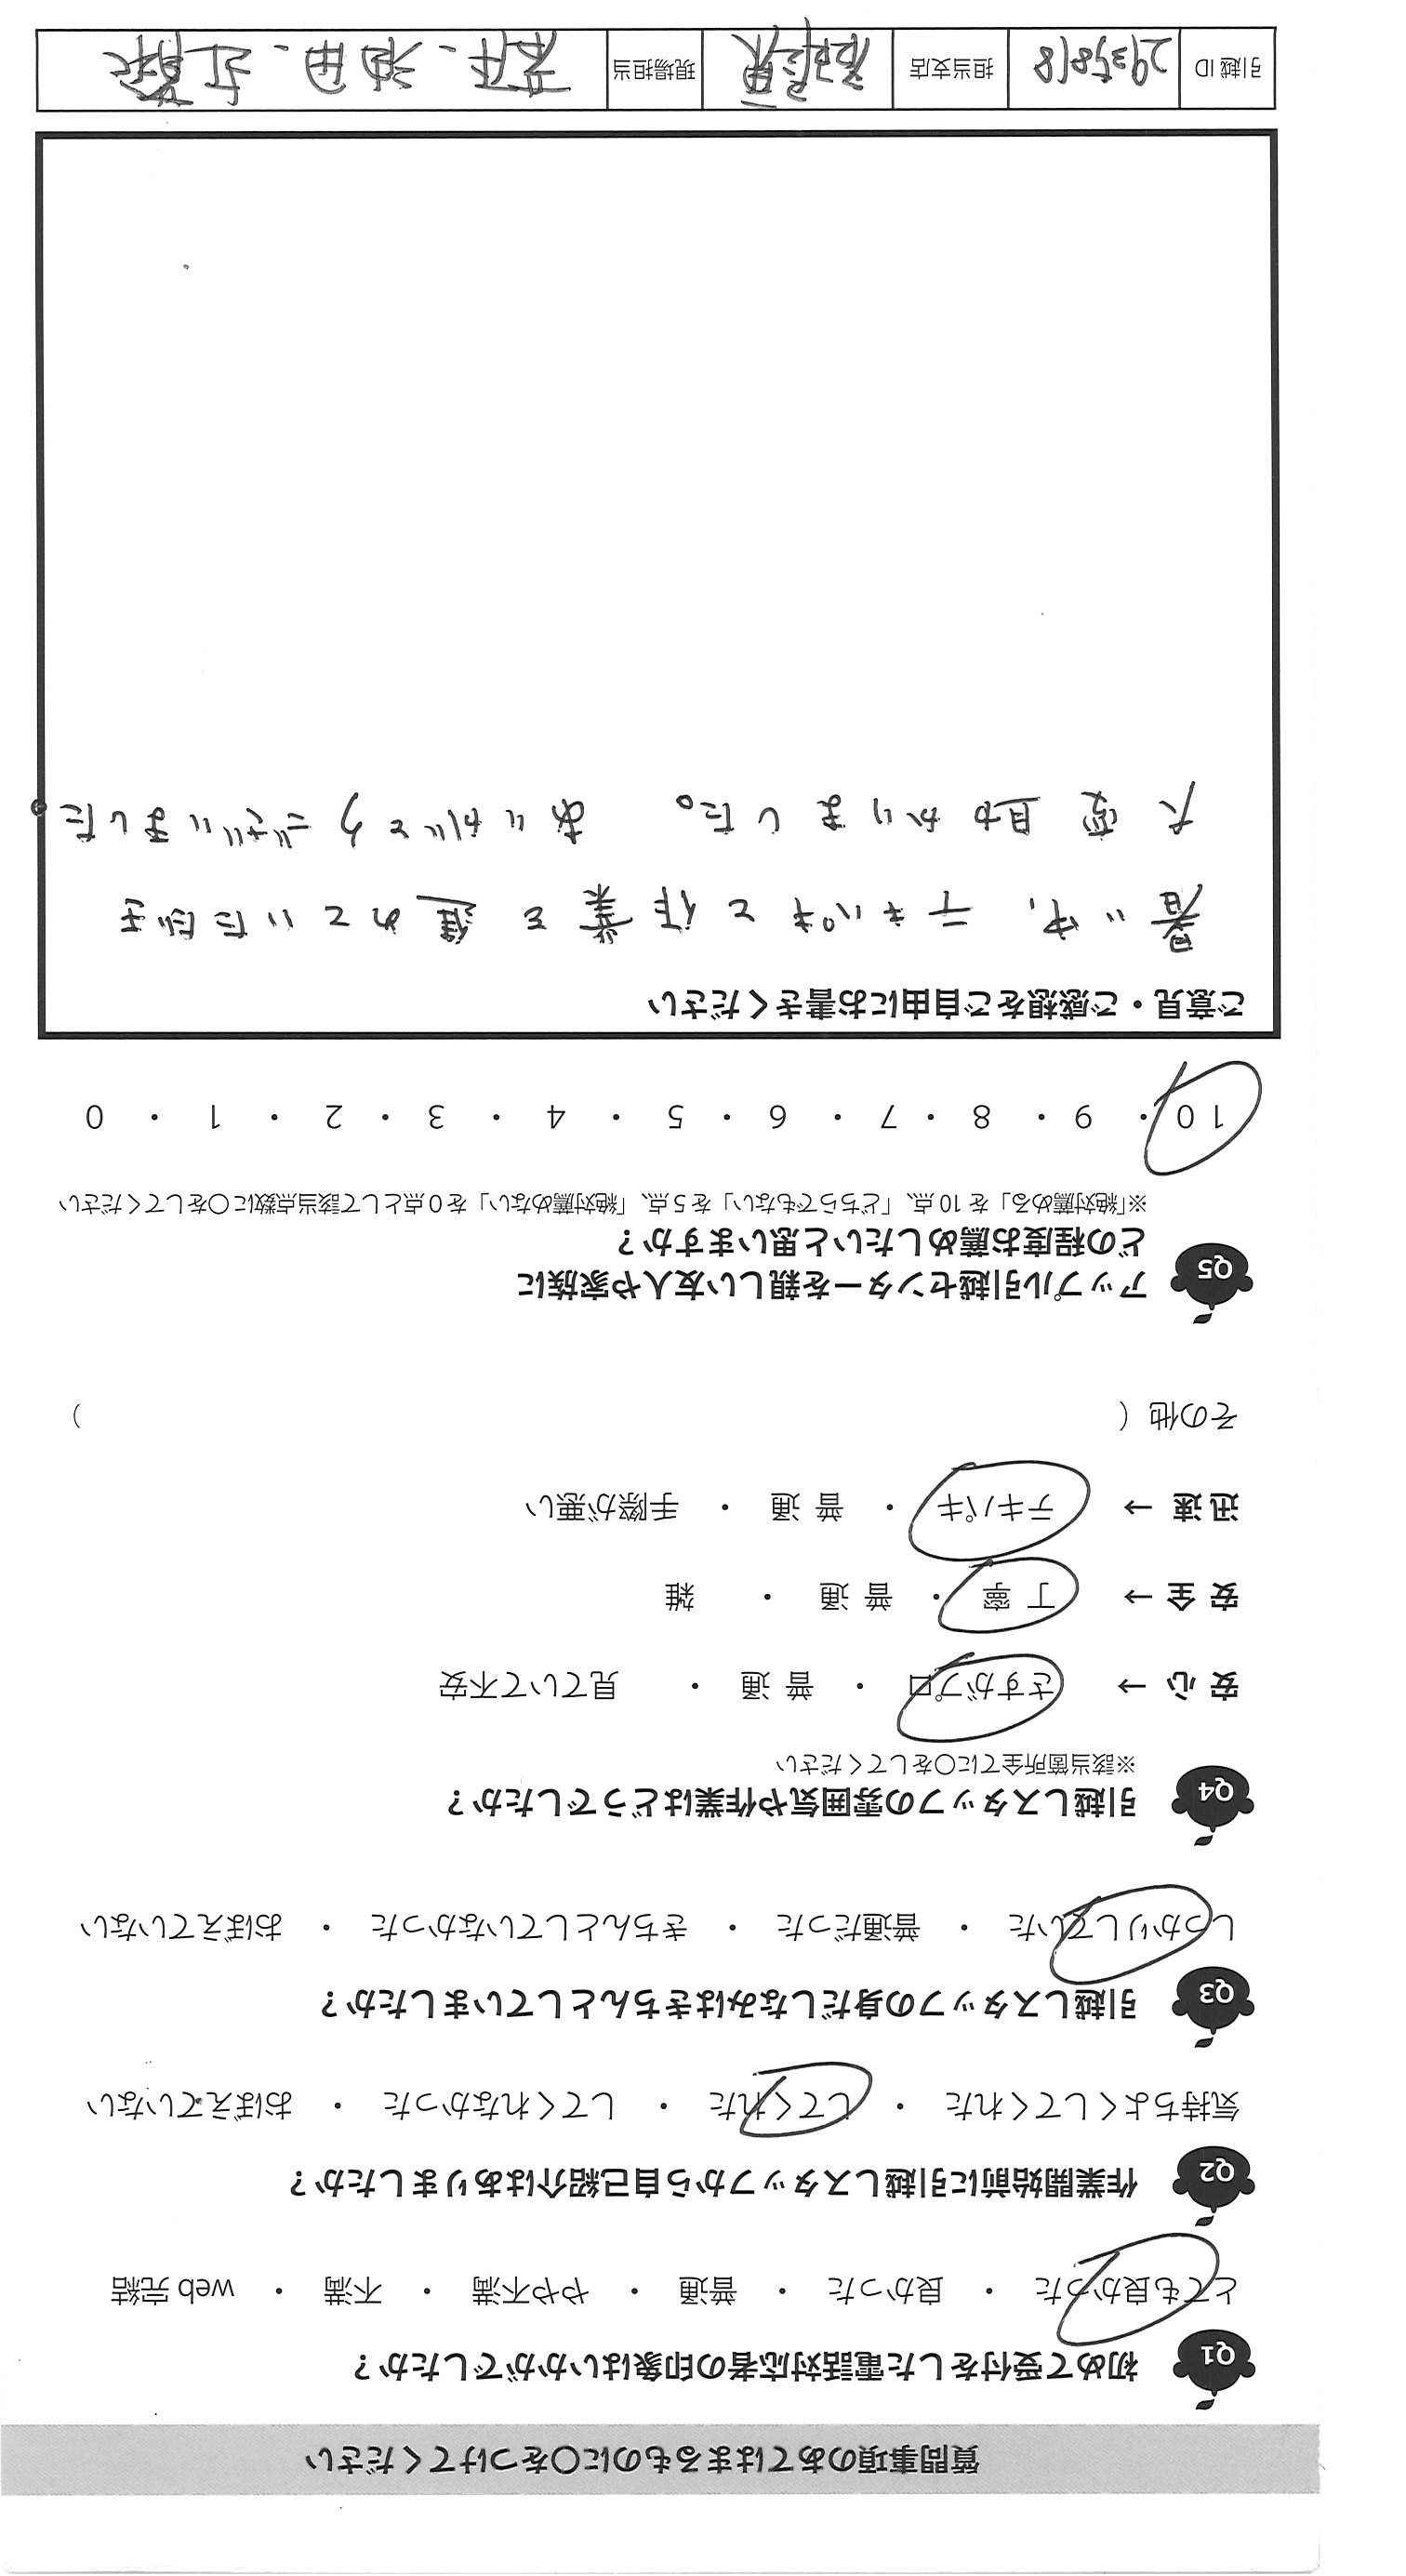 質問事項のあてはまるものに〇をつけてください
Q1 初めて受付をした電話対応者の印象はいかがでしたか？
とても良かった ・ 良かった ・ 普通 ・ やや不満 ・ 不満 ・ web 完結
Q2 作業開始前に引越しスタッフから自己紹介はありましたか？
気持ちよくしてくれた ・ してくれた ・ してくれなかった ・ おぼえていない
Q3 引越しスタッフの身だしなみはきちんとしていましたか？
しっかりしていた ・ 普通だった ・ きちんとしていなかった ・ おぼえていない
Q4 引越しスタッフの雰囲気や作業はどうでしたか？
※該当箇所全てに〇をしてください
安 心 → さすがプロ ・ 普 通 ・ 見ていて不安
安 全 → 丁 寧 ・ 普 通 ・ 雑
迅 速 → テキパキ ・ 普 通 ・ 手際が悪い
その他（ ）
Q5 アップル引越センターを親しい友人や家族に
どの程度お薦めしたいと思いますか？
※「絶対薦める」を 10 点、「どちらでもない」を 5 点、「絶対薦めない」を 0 点として該当点数に〇をしてください
10 ・ 9 ・ 8 ・ 7 ・ 6 ・ 5 ・ 4 ・ 3 ・ 2 ・ 1 ・ 0
ご意見・ご感想をご自由にお書きください
暑い中、テキパキと作業を進めていただき
大変助かりました。 ありがとうございました。
引越 ID 2935818 担当支店 現場担当